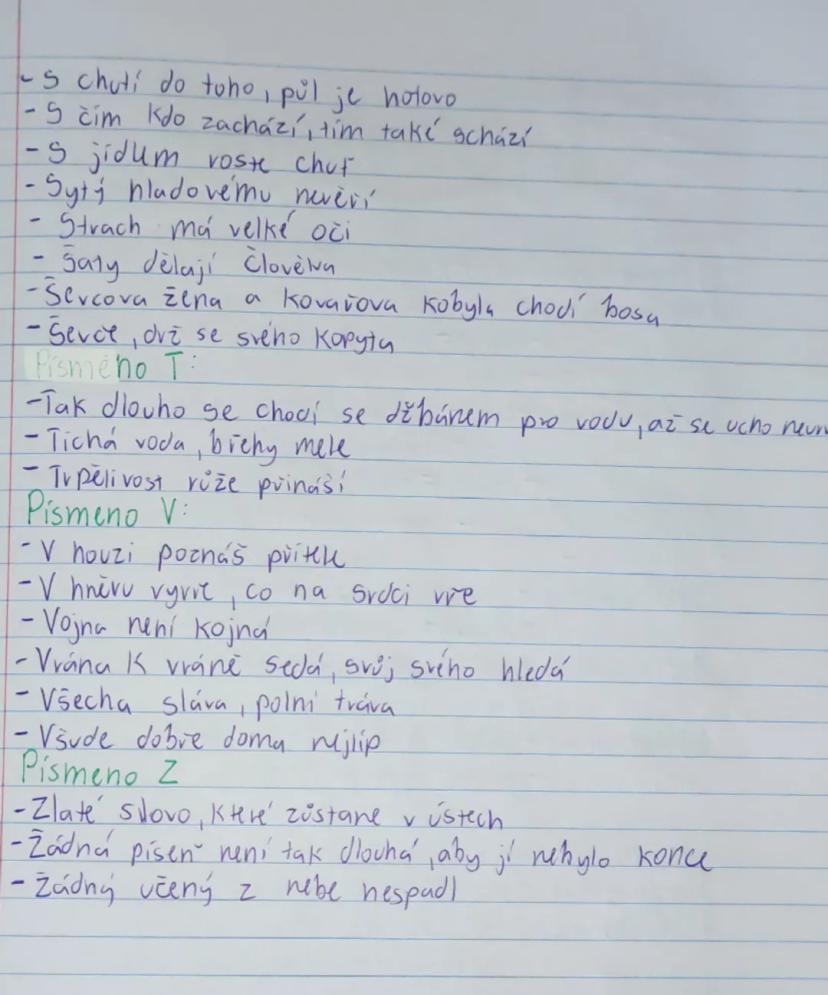 - S chutí do toho, půl je hotovo
- S čím kdo zachází, tím také schází
- S jídlem roste chuť
- Sytý hladovému nevěří
- Strach má velké oči
- Šaty dělají člověka
- Ševcova žena a kovářova kobyla chodí bosa
- Ševče, drž se svého kopyta
Písmeno T:
- Tak dlouho se chodí se džbánem pro vodu, až se ucho
- Tichá voda, břehy mele
- Trpělivost růže přináší
Písmeno V:
- V nouzi poznáš přítele
- V hněvu vyvře, co na srdci vře
- Vojna není kojná
- Vrána k vráně sedá, svůj svého hledá
- Všecha sláva, polní tráva
- Všude dobře doma nejlíp
Písmeno Z
- Zlaté slovo, které zůstane v ústech
- Žádná píseň není tak dlouhá, aby jí nebylo konce
- Žádný učený z nebe nespadl